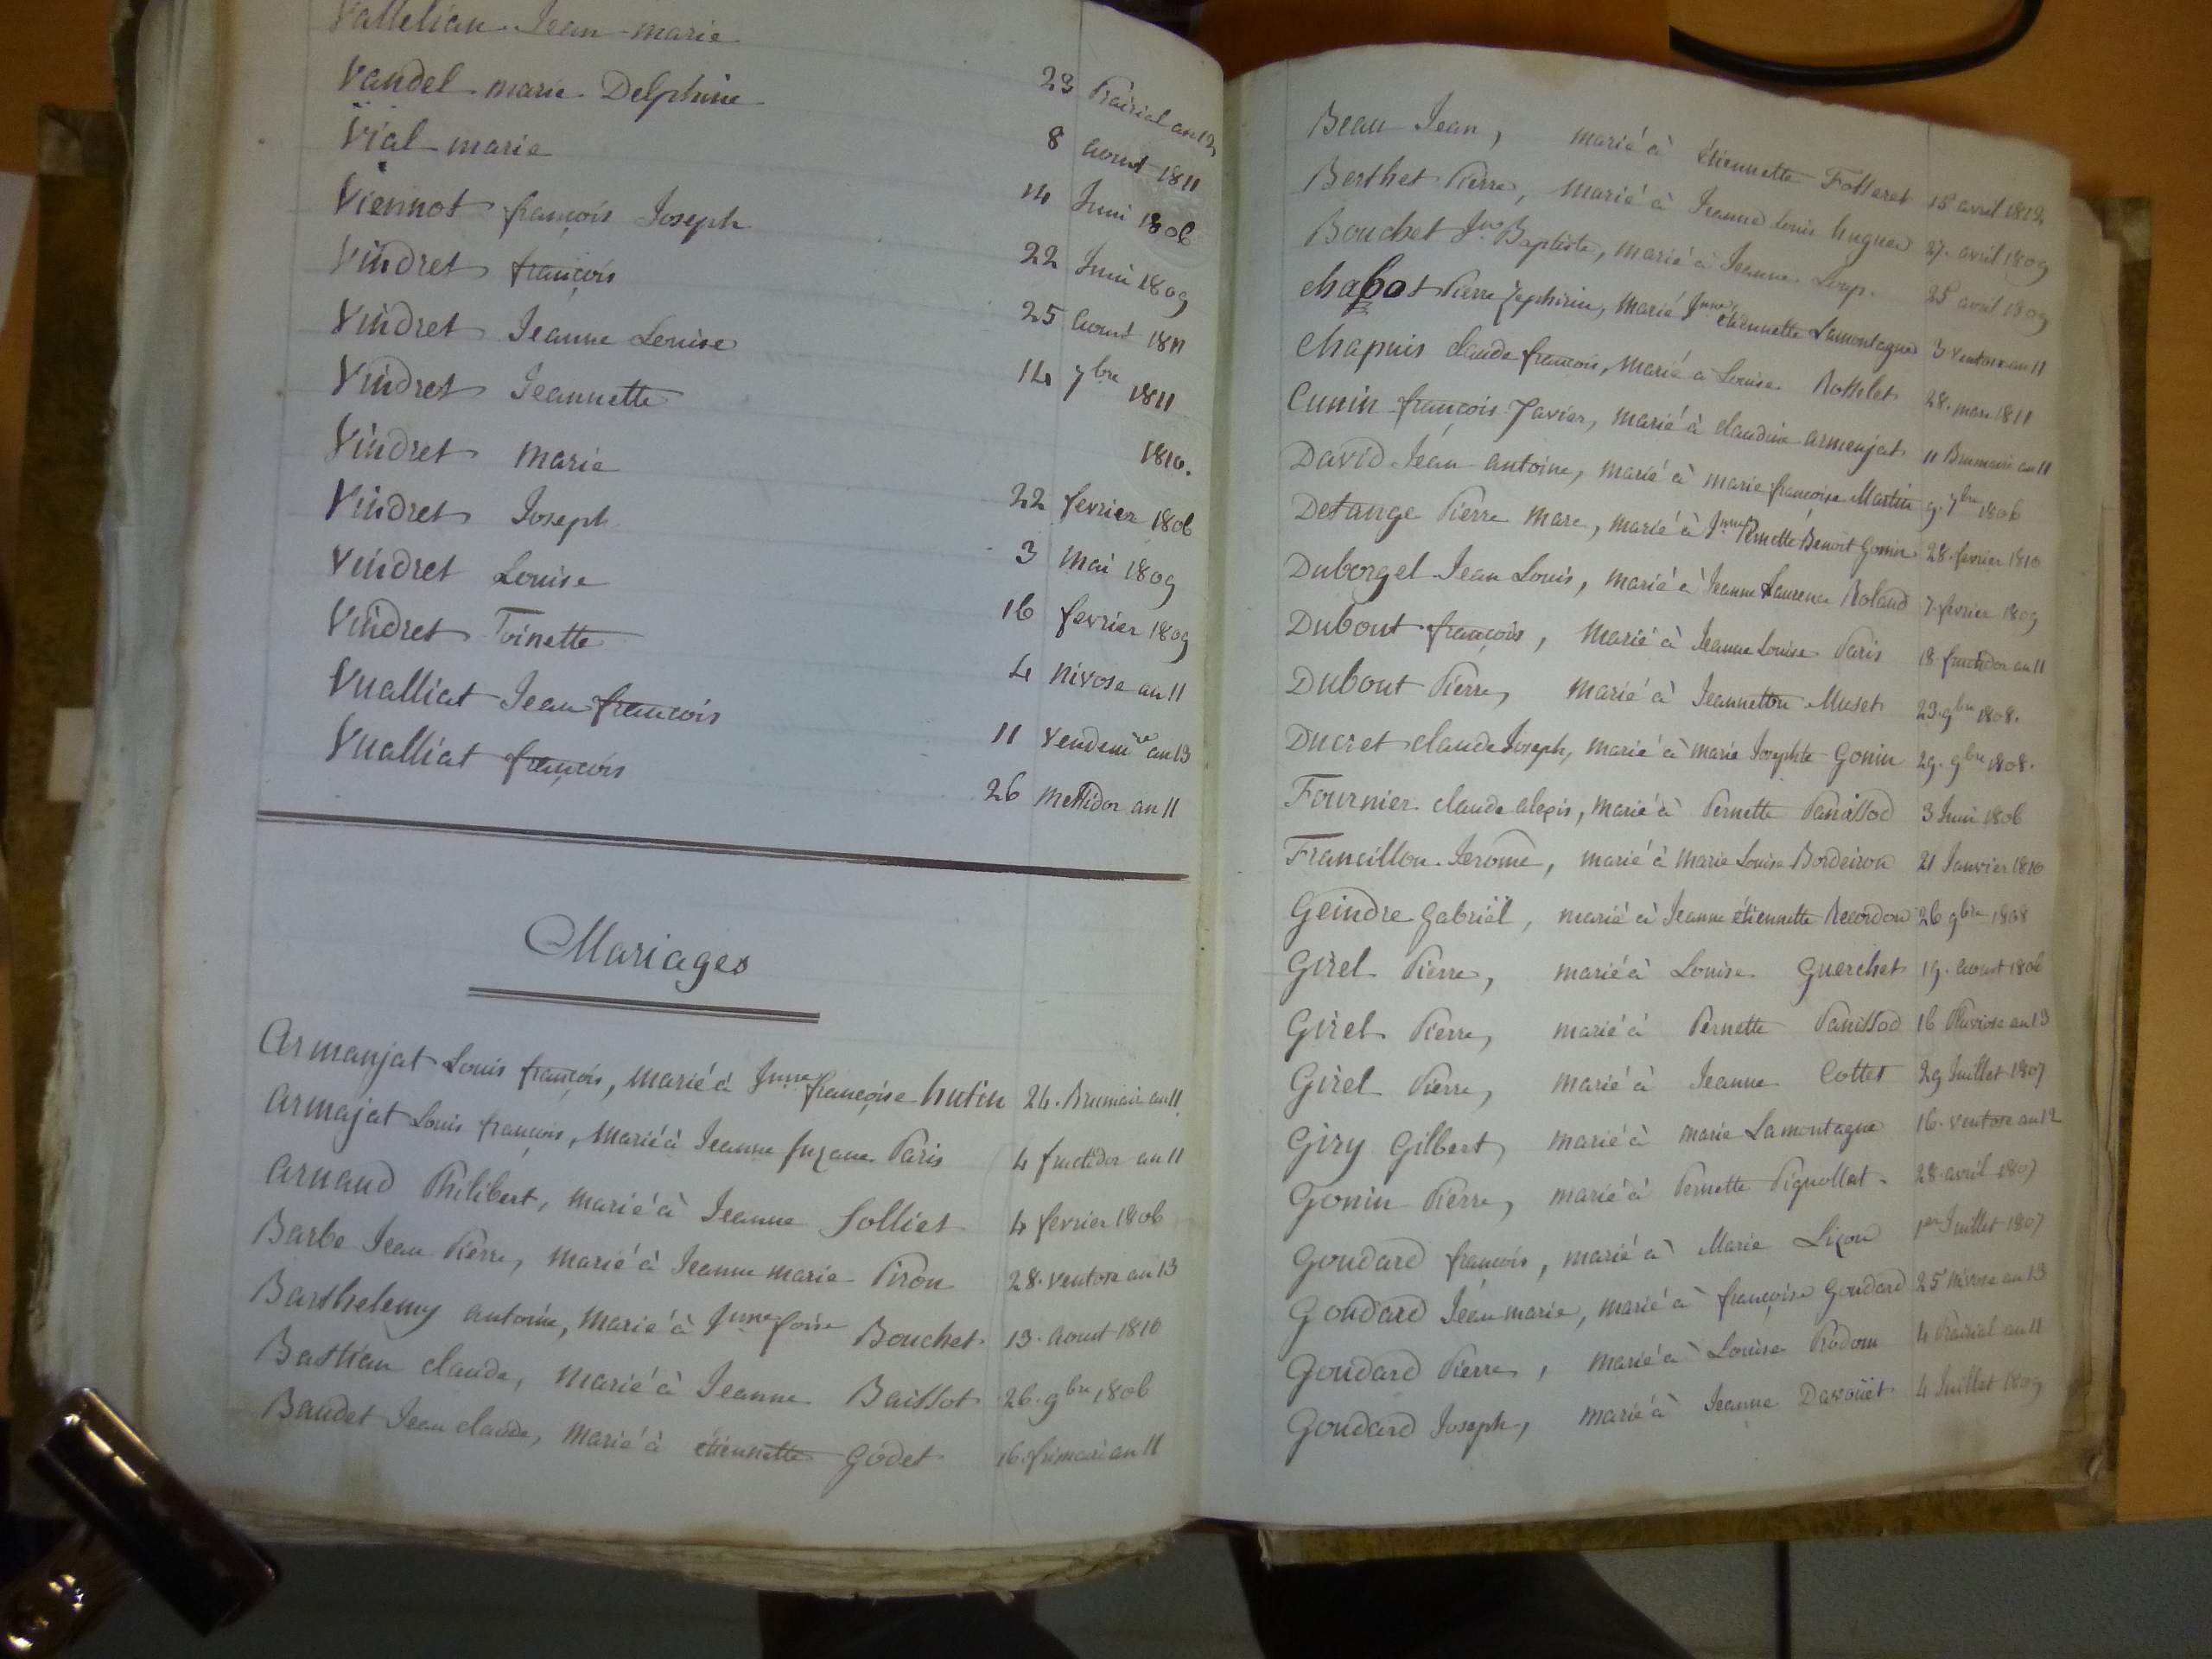 Vallelian Jean-marie
Vandel marie Delphine 23 Prairial an 12
Vial marie 8 aout 1811
Viennot françois Joseph 14 Juin 1806
Vindret françois 22 Juin 1809
Vindret Jeanne Louise 25 aout 1811
Vindret Jeannette 14 7bre 1811
Vindret marie 1810.
Vindret Joseph 22 fevrier 1806
Vindret Louise 3 mai 1809
Vindret Toinette 16 fevrier 1809
Vualliat Jean françois 4 nivose an 11
Vualliat françois 11 Vendemre an 13
26 Messidor an 11
Mariages
Armanjat Louis françois, marié à Jnne françoise hutin 24. Brumair an 11
Armajat Louis françois, marié à Jeanne Suzane Paris 4 fructidor an 11
Arnaud Philibert, marié à Jeanne Solliet 4 fevrier 1806
Barbe Jean Pierre, marié à Jeanne marie Piron 28. ventose an 13
Barthelemy antoine, marié à Jnne foise Bouchet 13. aout 1810
Bastian claude, marié à Jeanne Baissot 26. 9bre 1806
Baudet Jean claude, marié à étiennette Godet 16. frimair an 11
Beau Jean, marié à étiennette Folleret 15 avril 1812
Berthet Pierre, marié à Jeanne Louis hugues 27. avril 1809
Bouchet Jn Baptiste, marié à Jeanne Loup 25 avril 1809
Chabot Pierre Zephirin, marié Jnne étiennette Lamontagne 3 ventose an 11
Chapuis claude françois, marié à Louise Rosselet 28. mars 1811
Cunin françois Xavier, marié à claudine armenjat 11 Brumaire an 11
David Jean antoine, marié à marie françoise Martin 9. 7bre 1806
Detange Pierre marc, marié à Jnne Pernette Benoit Gonin 28. fevrier 1810
Duborgel Jean Louis, marié à Jeanne Laurence Roland 7. fevrier 1809
Dubout françois, marié à Jeanne Louise Paris 18 fructidor an 11
Dubout Pierre, marié à Jeannetton Muset 23. 9bre 1808.
Ducret claude Joseph, marié à marie Josephte Gonin 29. 9bre 1808.
Fournier claude alexis, marié à Pernette Panissod 3 Juin 1806
Francillon Jerome, marié à marie Louise Bordeiron 21 Janvier 1810
Geindre Gabriël, marié à Jeanne étiennette Recordon 26 9bre 1808
Girel Pierre, marié à Louise Guerchet 19. aoust 1806
Girel Pierre, marié à Pernette Panissod 16 Pluviose an 13
Girel Pierre, marié à Jeanne Cottet 29 Juillet 1807
Giry Gilbert, marié à marie Lamontagne 16. ventose an 12
Gonin Pierre, marié à Pernette Pignollat. 28. avril 1807
Goudard françois, marié à Marie Lizon 1er Juillet 1807
Goudard Jean marie, marié à françoise Goudard 25 nivose an 13
Goudard Pierre, marié à Louise Prudom 4 Prairial an 11
Goudard Joseph, marié à Jeanne Davouët 4 Juillet 1809